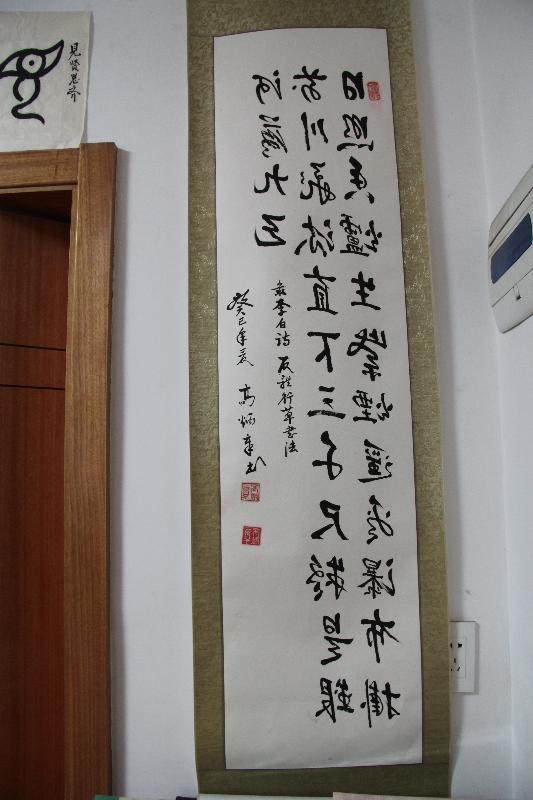 日照香爐生紫煙遥看瀑布掛
前川飛流直下三千尺疑是銀
河落九天
录李白诗 反體行草書法
癸巳年夏 高炳章书
見賢思齐